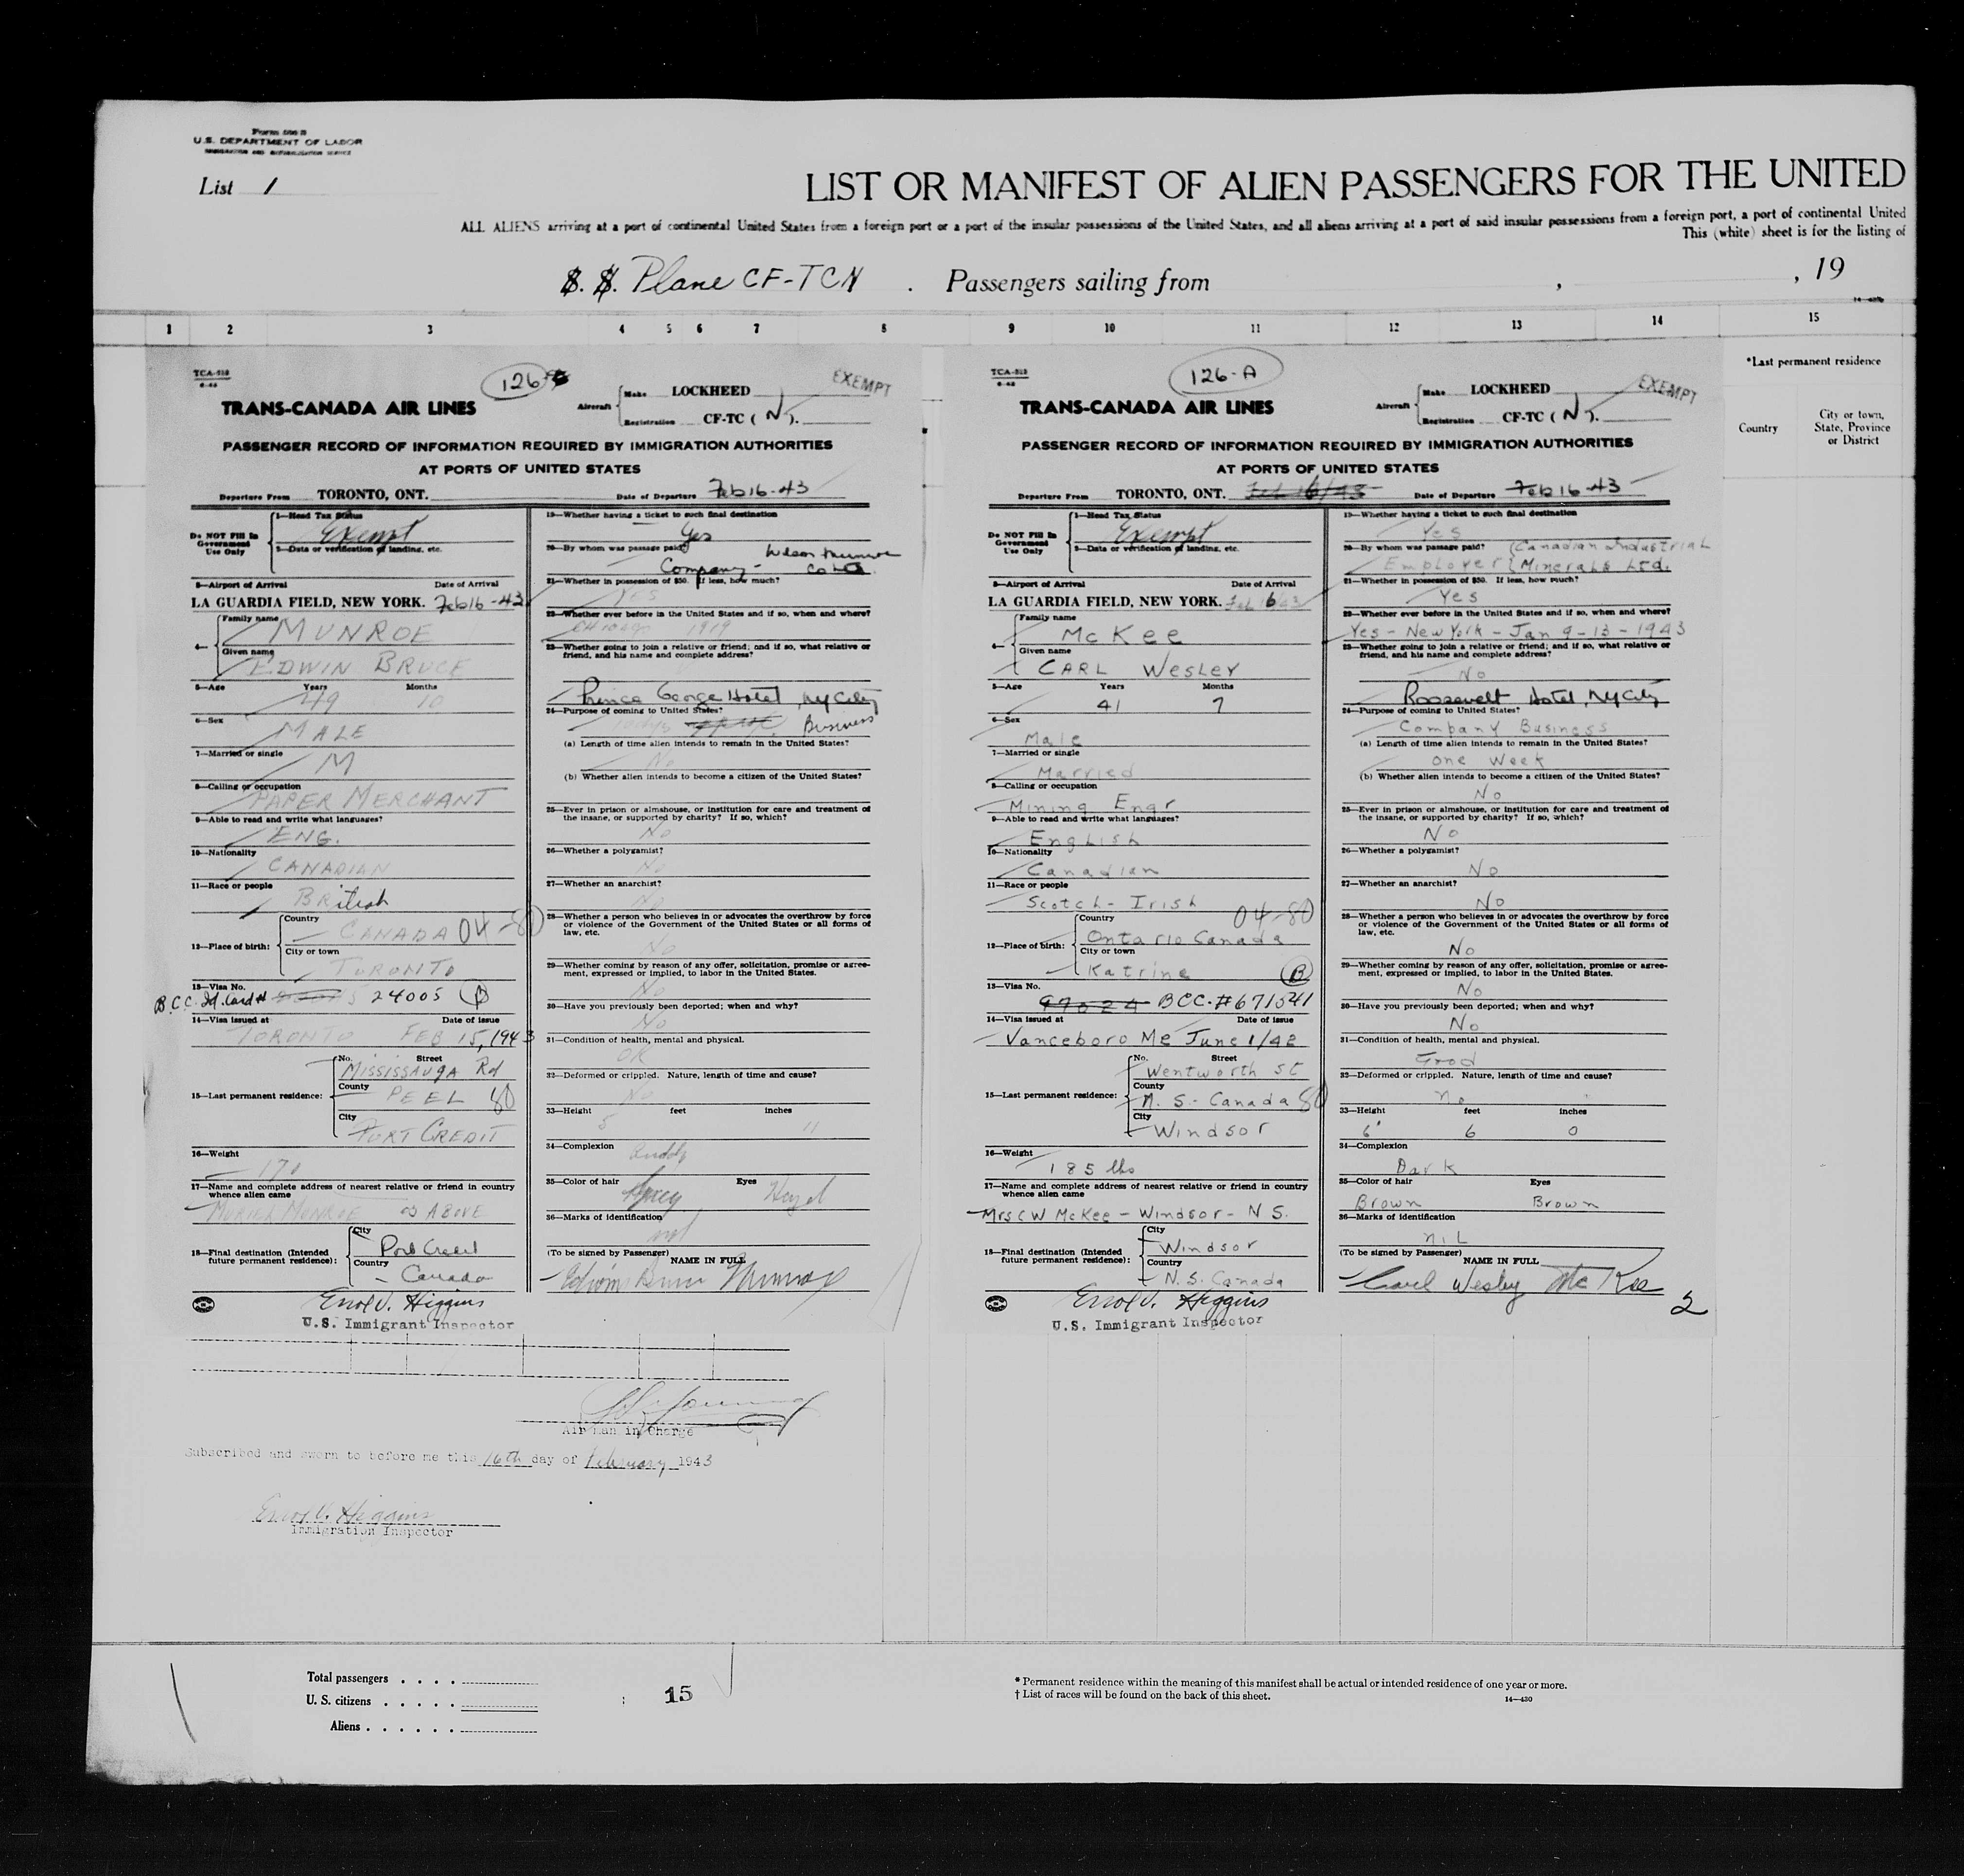 Form 500 B
U.S. DEPARTMENT OF LABOR
IMMIGRATION AND NATURALIZATION SERVICE
List 1
LIST OR MANIFEST OF ALIEN PASSENGERS FOR THE UNITED
ALL ALIENS arriving at a port of continental United States from a foreign port or a port of the insular possessions of the United States, and all aliens arriving at a port of said insular possessions from a foreign port, a port of continental United
This (white) sheet is for the listing of
S. S. Plane CF-TCN . Passengers sailing from , , 19
1 2 3 4 5 6 7 8 9 10 11 12 13 14 15
*Last permanent residence
Country
City or town, State, Province or District
126
EXEMPT
TRANS-CANADA AIR LINES
Aircraft Make LOCKHEED
Registration CF-TC ( N ).
PASSENGER RECORD OF INFORMATION REQUIRED BY IMMIGRATION AUTHORITIES
AT PORTS OF UNITED STATES
Departure From TORONTO, ONT. Date of Departure Feb 16-43
Do NOT Fill In Government Use Only
1—Head Tax Status
Exempt
2—Data or verification of landing, etc.
3—Airport of Arrival Date of Arrival
LA GUARDIA FIELD, NEW YORK. Feb 16-43
4— Family name
MUNROE
Given name
EDWIN BRUCE
5—Age Years Months
49 10
6—Sex
MALE
7—Married or single
M
8—Calling or occupation
PAPER MERCHANT
9—Able to read and write what languages?
ENG.
10—Nationality
CANADIAN
11—Race or people
British
12—Place of birth: Country
CANADA 04-80
City or town
TORONTO
13—Visa No.
B.C.C. Id. Card # 24005 B
14—Visa issued at Date of issue
TORONTO FEB 15, 1943
15—Last permanent residence: No. Street
MISSISSAUGA Rd
County
PEEL 80
City
PORT CREDIT
16—Weight
170
17—Name and complete address of nearest relative or friend in country whence alien came
MURIEL MUNROE as ABOVE
18—Final destination (Intended future permanent residence): City
Port Credit
Country
Canada
Errol V. Higgins
U.S. Immigrant Inspector
19—Whether having a ticket to such final destination
Yes
20—By whom was passage paid?
Company - Wilson Munroe Co Ltd
21—Whether in possession of $50. If less, how much?
YES
22—Whether ever before in the United States and if so, when and where?
Chicago 1919
23—Whether going to join a relative or friend; and if so, what relative or friend, and his name and complete address?
Prince George Hotel, NY City
24—Purpose of coming to United States?
Business
(a) Length of time alien intends to remain in the United States?
(b) Whether alien intends to become a citizen of the United States?
No
25—Ever in prison or almshouse, or institution for care and treatment of the insane, or supported by charity? If so, which?
No
26—Whether a polygamist?
No
27—Whether an anarchist?
No
28—Whether a person who believes in or advocates the overthrow by force or violence of the Government of the United States or all forms of law, etc.
No
29—Whether coming by reason of any offer, solicitation, promise or agreement, expressed or implied, to labor in the United States.
No
30—Have you previously been deported; when and why?
No
31—Condition of health, mental and physical.
OK
32—Deformed or crippled. Nature, length of time and cause?
No
33—Height feet inches
5 11
34—Complexion
Ruddy
35—Color of hair Eyes
Grey Hazel
36—Marks of identification
(To be signed by Passenger) NAME IN FULL
Edwin Bruce Munroe
TCA-313
126-A
EXEMPT
TRANS-CANADA AIR LINES
Aircraft Make LOCKHEED
Registration CF-TC ( N ).
PASSENGER RECORD OF INFORMATION REQUIRED BY IMMIGRATION AUTHORITIES
AT PORTS OF UNITED STATES
Departure From TORONTO, ONT. Feb 16/43 Date of Departure Feb 16-43
Do NOT Fill In Government Use Only
1—Head Tax Status
Exempt
2—Data or verification of landing, etc.
3—Airport of Arrival Date of Arrival
LA GUARDIA FIELD, NEW YORK. Feb 16/43
4— Family name
McKee
Given name
CARL Wesley
5—Age Years Months
41 7
6—Sex
Male
7—Married or single
Married
8—Calling or occupation
Mining Engr
9—Able to read and write what languages?
English
10—Nationality
Canadian
11—Race or people
Scotch-Irish
12—Place of birth: Country 04-80
Ontario Canada
City or town
Katrine B
13—Visa No.
97024 BCC-#671541
14—Visa issued at Date of issue
Vanceboro Me June 1/42
15—Last permanent residence: No. Street
Wentworth St
County
N. S. - Canada 80
City
Windsor
16—Weight
185 lbs
17—Name and complete address of nearest relative or friend in country whence alien came
Mrs C W McKee - Windsor - N S.
18—Final destination (Intended future permanent residence): City
Windsor
Country
N. S. Canada
Errol V. Higgins
U.S. Immigrant Inspector
19—Whether having a ticket to such final destination
Yes
20—By whom was passage paid?
Employer Canadian Industrial Minerals Ltd.
21—Whether in possession of $50. If less, how much?
Yes
22—Whether ever before in the United States and if so, when and where?
Yes - New York - Jan 9-13-1943
23—Whether going to join a relative or friend; and if so, what relative or friend, and his name and complete address?
No
Roosevelt Hotel, NY City
24—Purpose of coming to United States?
Company Business
(a) Length of time alien intends to remain in the United States?
one week
(b) Whether alien intends to become a citizen of the United States?
No
25—Ever in prison or almshouse, or institution for care and treatment of the insane, or supported by charity? If so, which?
No
26—Whether a polygamist?
No
27—Whether an anarchist?
No
28—Whether a person who believes in or advocates the overthrow by force or violence of the Government of the United States or all forms of law, etc.
No
29—Whether coming by reason of any offer, solicitation, promise or agreement, expressed or implied, to labor in the United States.
No
30—Have you previously been deported; when and why?
No
31—Condition of health, mental and physical.
Good
32—Deformed or crippled. Nature, length of time and cause?
No
33—Height feet inches
6' 6 0
34—Complexion
Dark
35—Color of hair Eyes
Brown Brown
36—Marks of identification
nil
(To be signed by Passenger) NAME IN FULL
Carl Wesley McKee
2
Air man in Charge
Subscribed and sworn to before me this 16th day of February 1943
Errol V. Higgins
Immigration Inspector
Total passengers . . . .
U. S. citizens . . . . .
Aliens . . . . . .
15
* Permanent residence within the meaning of this manifest shall be actual or intended residence of one year or more.
† List of races will be found on the back of this sheet. 14—430